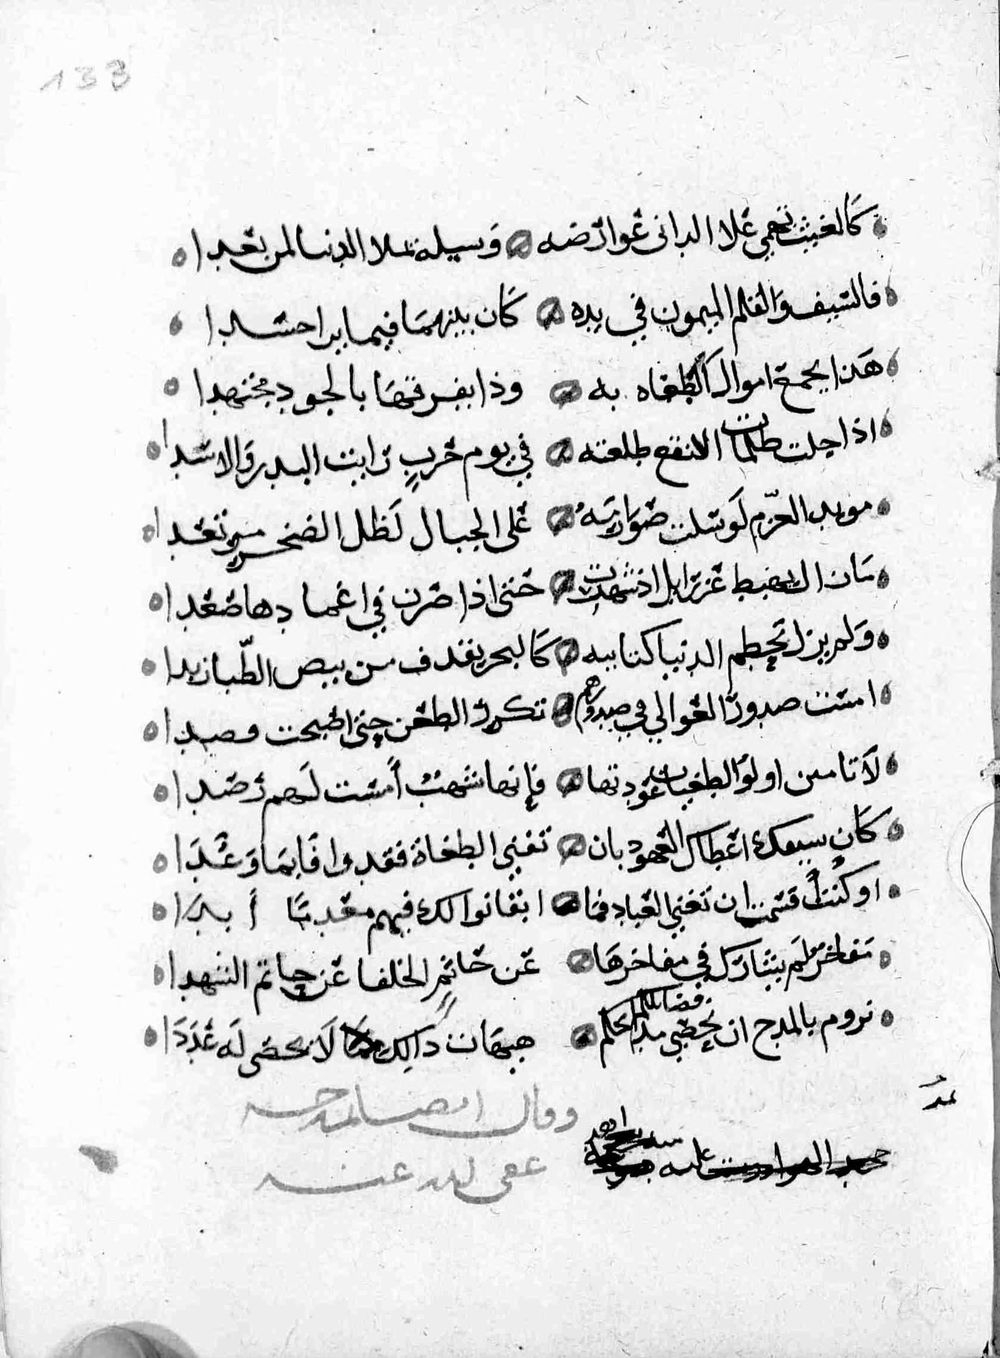 133
كَالغيث تهمي عَلا الدانى عَوارضه وَسيله تملا الدنيا لمن بعَدا
فالسّيف وَالقلم الميمون في يده كَان بينهمَا فيما يرا حسَدا
هَذا يجمع اموال الطغاه به وذا يفرقهَا بالجود مجتهدا
اذا جلت ظلمات النقع طلعته في يوم حَربٍ رَايت البدر وَالاسَدا
مويد العزم لَو سَلت صَوَارمَهُ عَلى الجبال لَظل الصخر مرتعَدا
ولم يزل تحطم الدنيا كتايبه كَالبحر يقذف من بيض الظّبا زبدا
امسَت صدور العَوالي في صدورهم تكررُ الطعن حتى اصبحت قصدا
لَا تامن اولو الطغيان عَودتها فانها شهبُ أمسَت لَهم رَصَدا
كَان سيفك اعَطاك العهود بان تفني الطغاة فقد وا فَا بمَا وَعَدَا
او كُنتَ أقسَمت ان تغني العَباد فما ابقا نوالك فيهم معَدمًا أ بدَا
مَفاخرٌ لَم يشارَك في مفاخرهَا عَن خَاتمِ الخلفا عَن حاتم الشهدا
نروم بالمدح ان نحصَي فضائلكم هيهَات ذَالك مَا لَا يحصَى لَه عَدَدَا
وقال ايضا يمدحه
عفى الله عنه